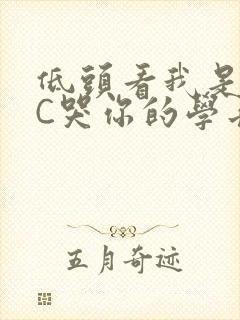 低頭看我是
C哭你的學
五月奇迹